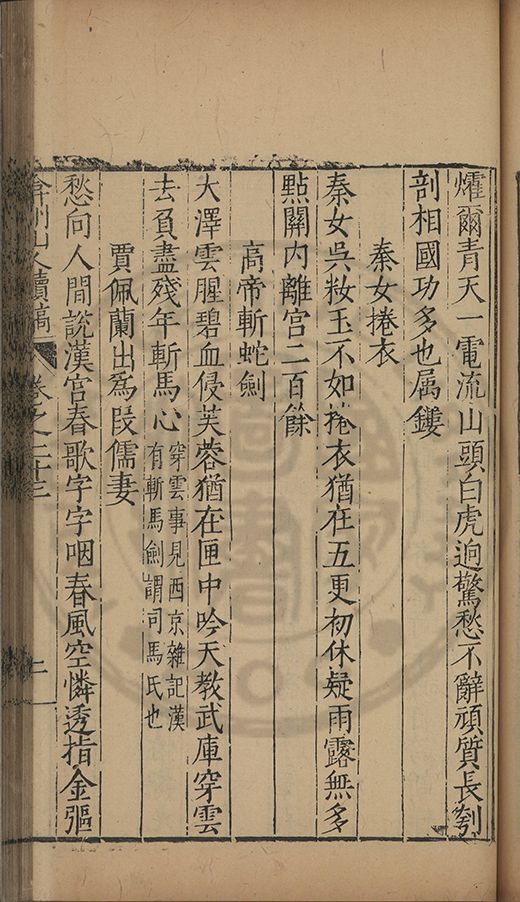 燿爾青天一電流山頭白虎逈驚愁不辭頑質長刳
剖相國功多也属鏤
秦女捲衣
秦女吳粧玉不如捲衣猶在五更初休疑雨露無多
點關内離宫二百餘
高帝斬蛇劍
大澤雲腥碧血侵芙蓉猶在匣中吟天教武庫穿雲
去負盡殘年斬馬心穿雲事見西京雜記漢
有斬馬劍謂司馬氏也
賈佩蘭出為段儒妻
愁向人間說漢宫春歌字字咽春風空憐透指金彄
弇州山人續稿 卷之二十三